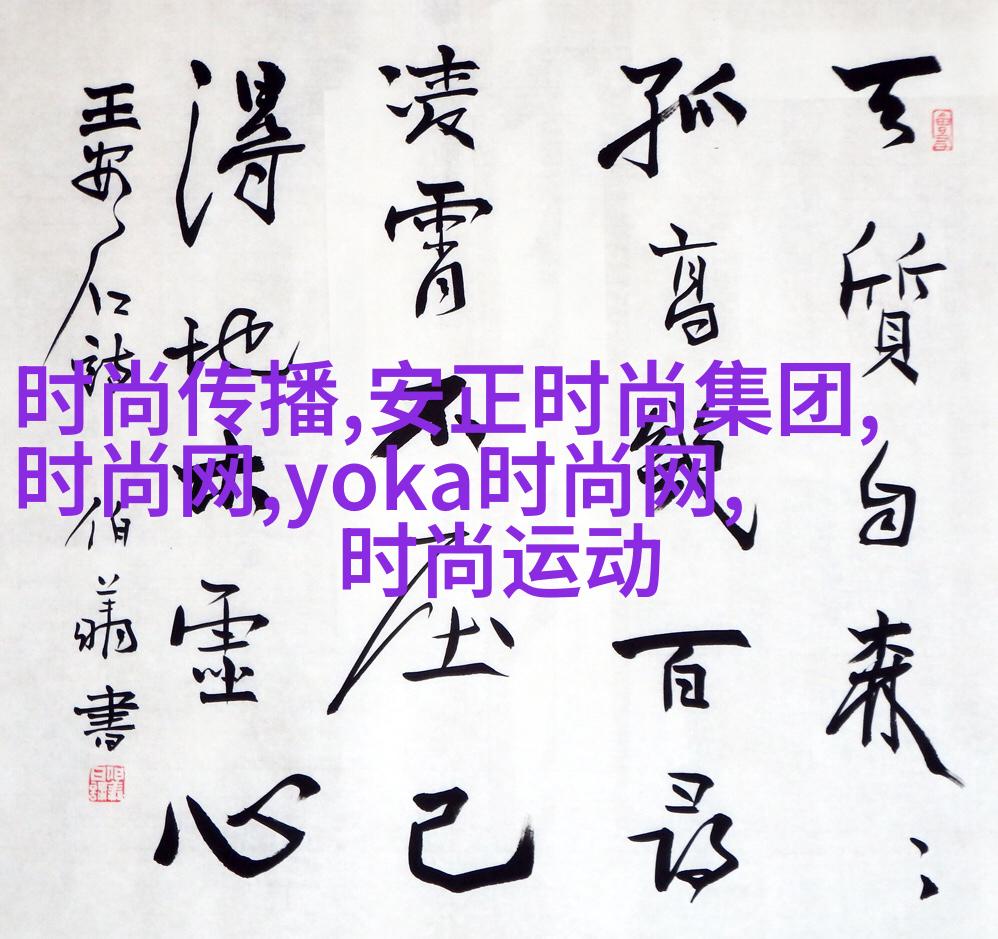 天質自森々
孤高幾百尋
凌霄不屈己
得地本虛心
王安石詩 伯 書
时尚传播,安正时尚集团,
时尚网,yoka时尚网,
时尚运动